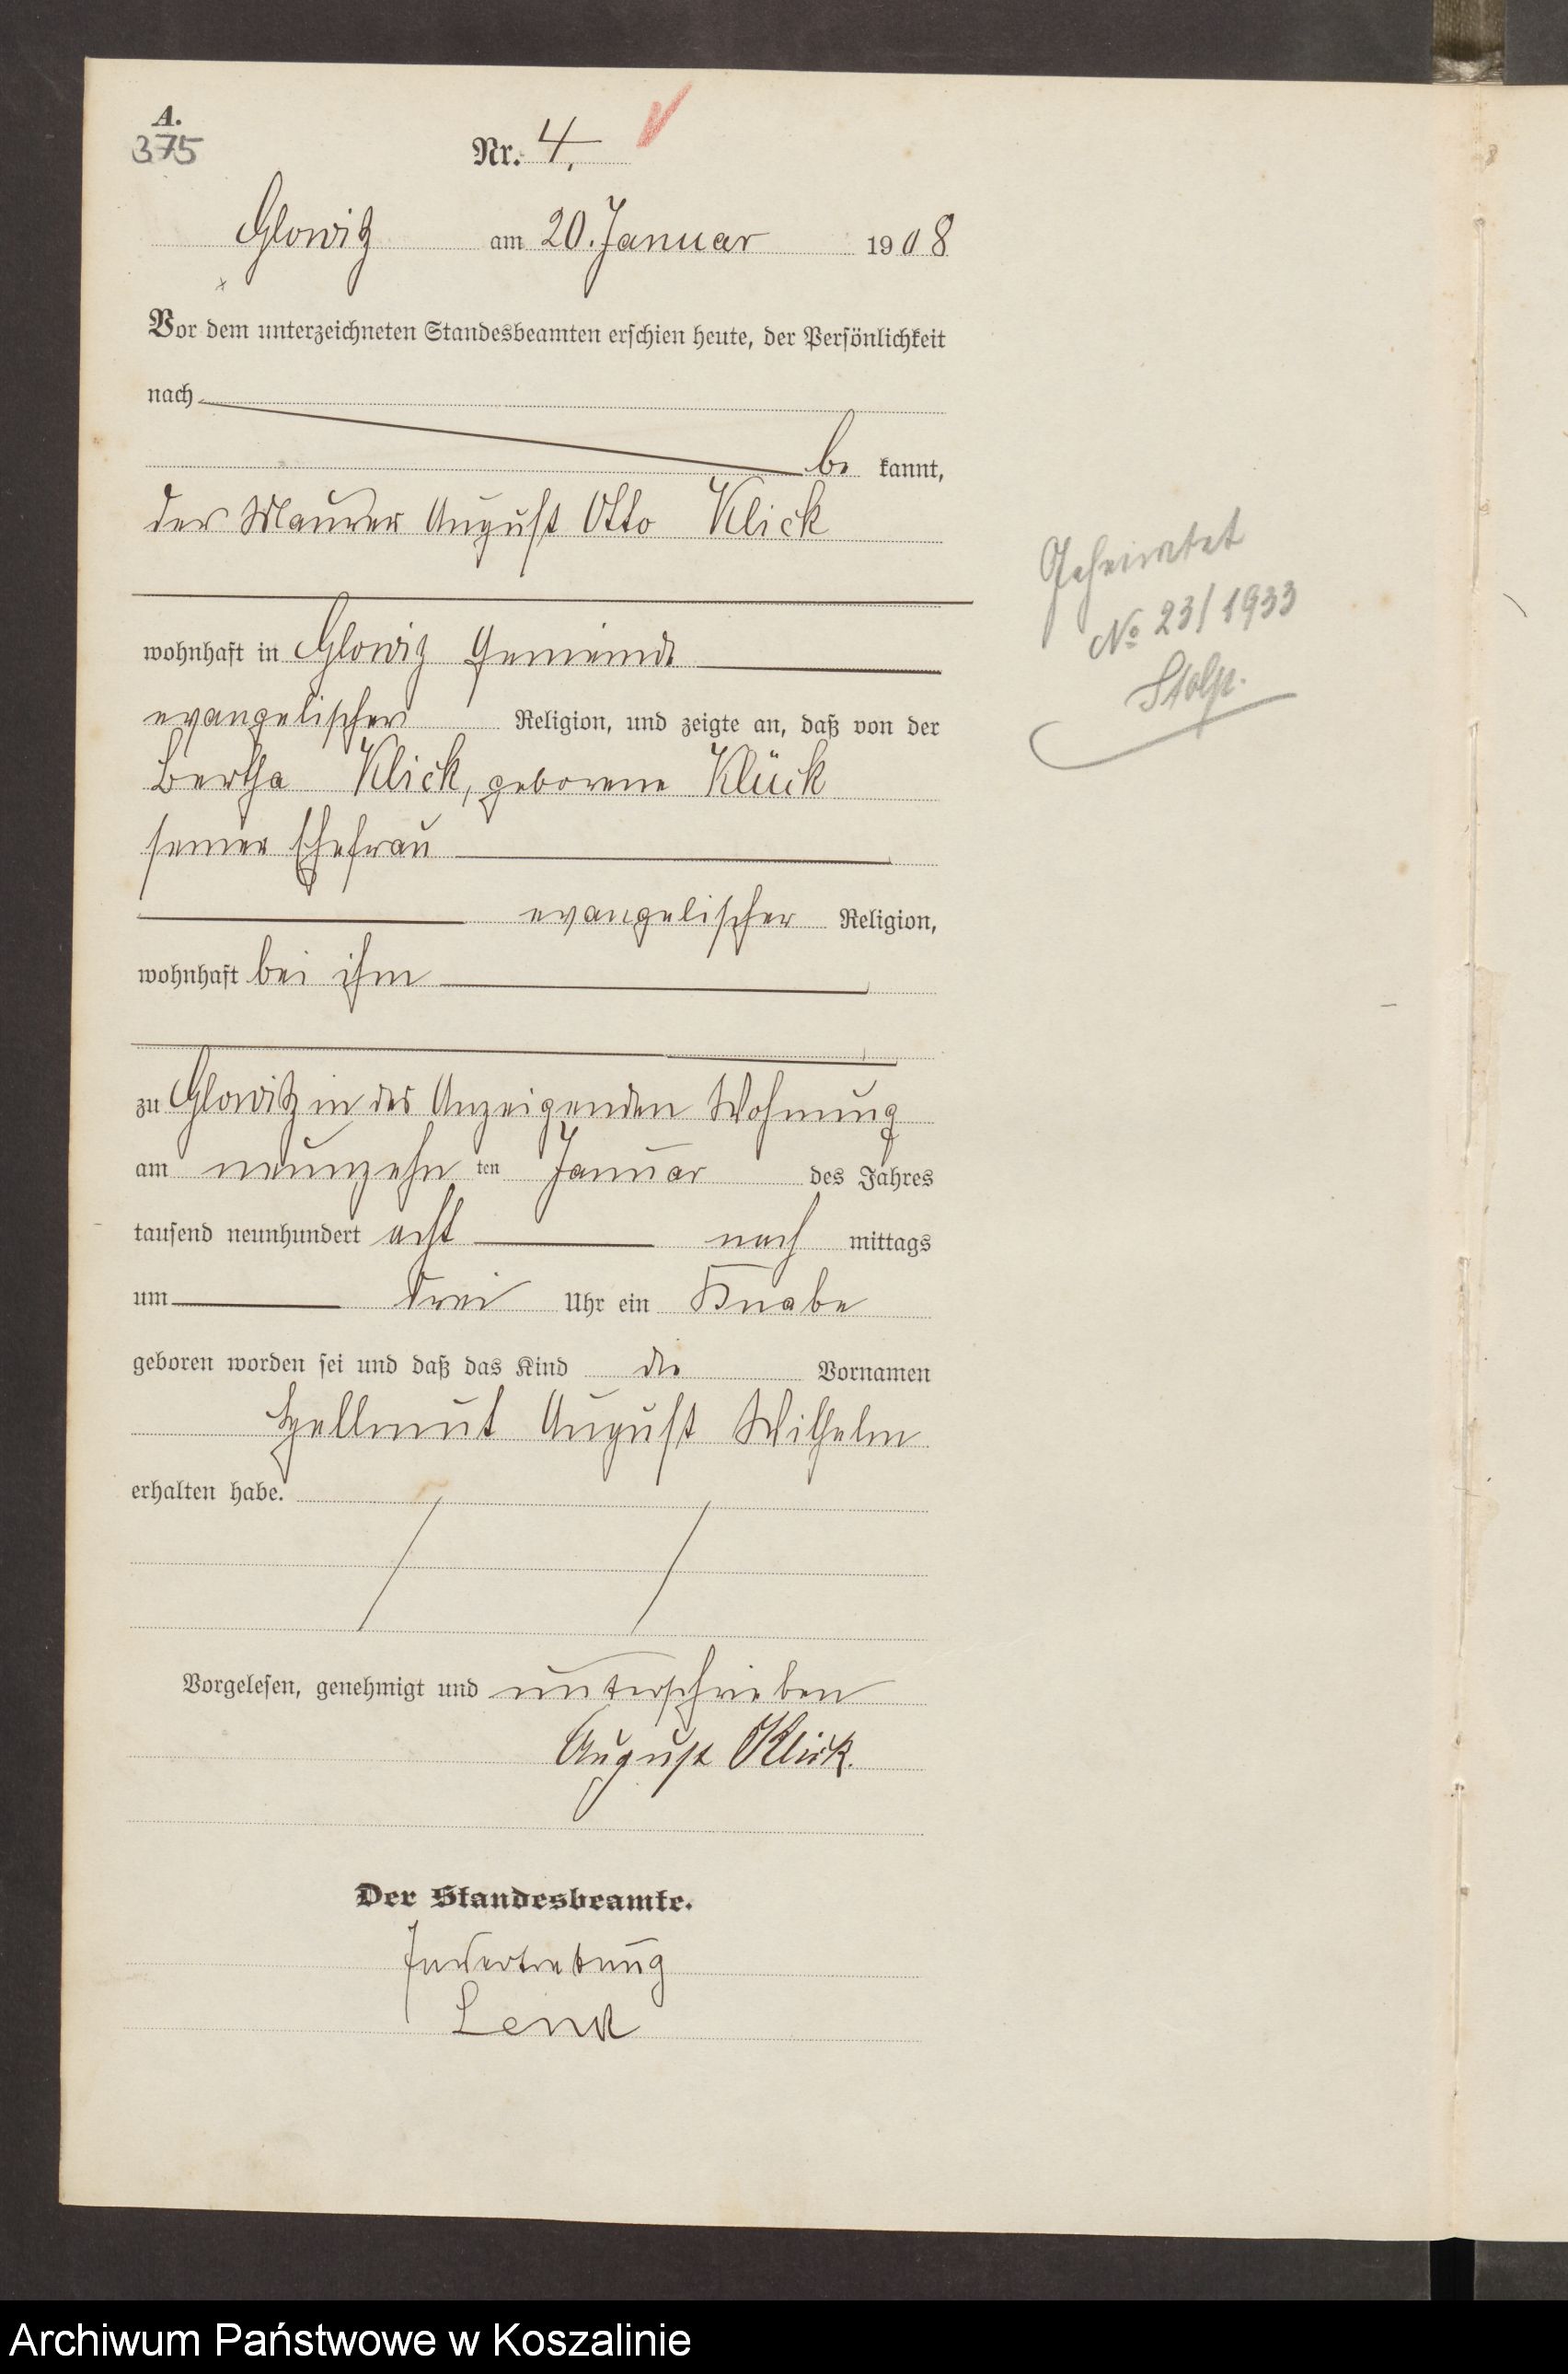 A.
375
Nr. 4.
Glowitz am 20. Januar 1908
Vor dem unterzeichneten Standesbeamten erschien heute, der Persönlichkeit
nach
be kannt,
der Maurer August Otto Klick
wohnhaft in Glowitz Gemeinde
evangelischer Religion, und zeigte an, daß von der
Bertha Klick, geborene Klück
seiner Ehefrau
evangelischer Religion,
wohnhaft bei ihm
zu Glowitz in des Anzeigenden Wohnung
am neunzehn ten Januar des Jahres
tausend neunhundert acht nach mittags
um drei Uhr ein Knabe
geboren worden sei und daß das Kind die Vornamen
Hellmut August Wilhelm
erhalten habe.
Vorgelesen, genehmigt und unterschrieben
August Klick.
Der Standesbeamte.
In Vertretung
Geheiratet
No 23/1933
Stolp.
Archiwum Państwowe w Koszalinie